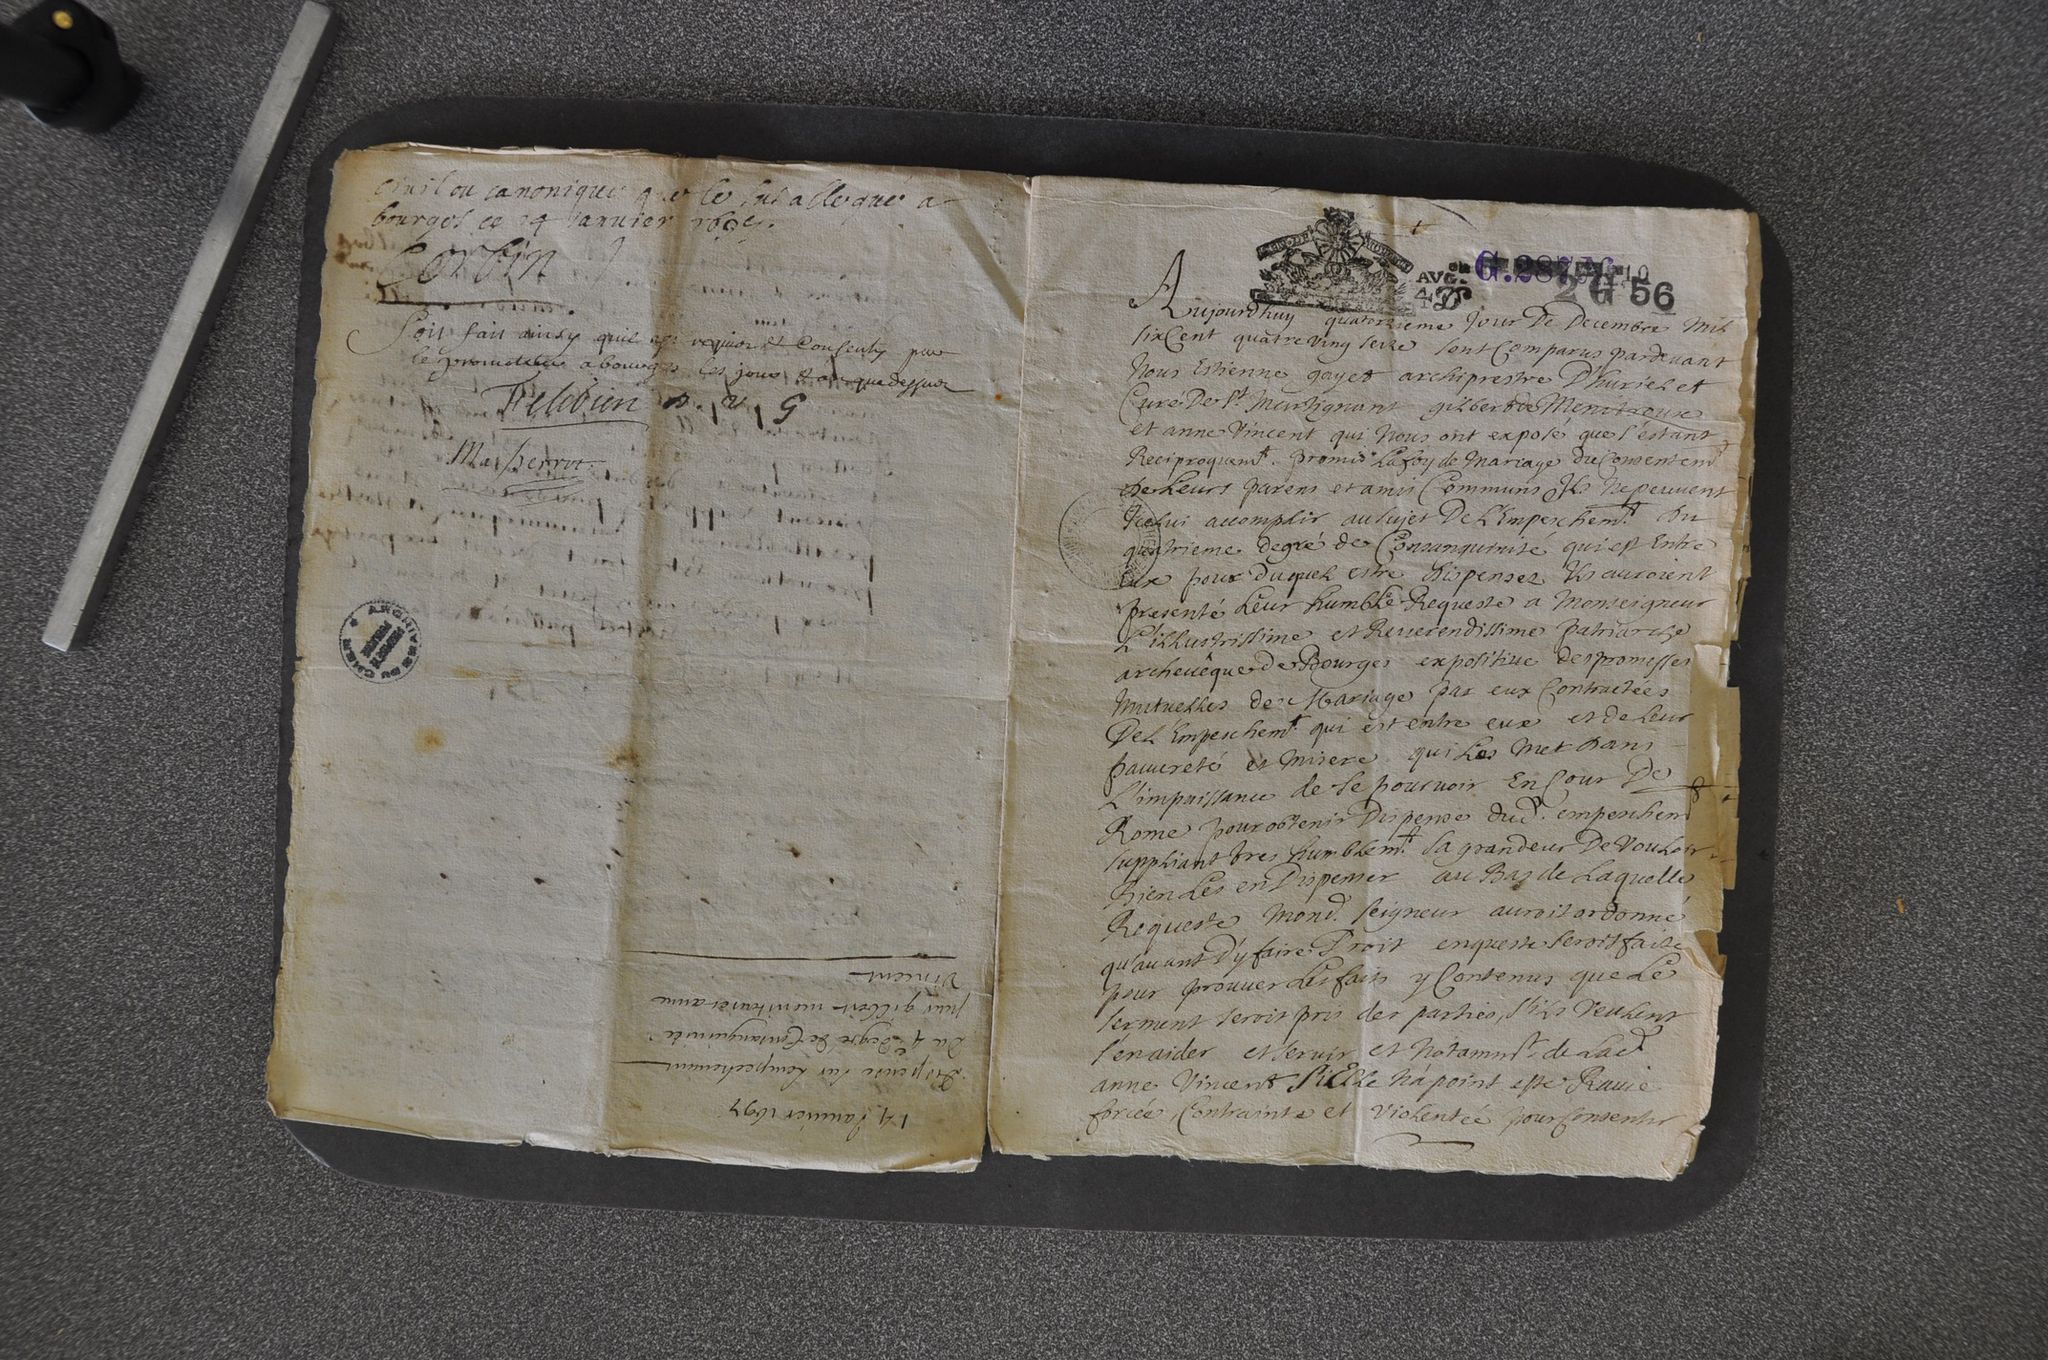 civil ou canonique que le sus allegué a
bourges ce 14 janvier 1697.
Corbin
Soit fait ainsy quil est requis et consenty par
le promoteur a bourges les jour et an que dessus
Felibien p. v. g
Masperrot
ARCHIVES DU CHER
14 Janvier 1697
Dispense sur lempechement
du 4e degré de Consanguinité
pour gilbert menitroux et anne
Vincent
AVG.en
4 D
G.287
10
2 G 56
Aujourdhuy quatorzieme jour De Decembre Mil
sixCent quatreving seize sont Comparus pardevant
Nous Estienne gayet archiprestre D'huriel et
Curé De St. Martignant gilbert de Menitroux
et anne Vincent qui Nous ont exposé que s'estant
Reciproquemt. promis La foy de Mariage du Consentemt
de Leurs parens et amis Communs Ils ne peuvent
Icelui accomplir au sujet De L'Empeschemt. du
quatrieme degré de Consanguinité qui est Entre
Eux pour duquel estre dispensez Ils auroient
presenté Leur humble Requeste a Monseigneur
L'illustrissime et Reverendissime patriarche
archevêque De Bourges expositive des promesses
Mutuelles de Mariage par eux Contractées
De L'Empeschemt. qui est entre eux et de Leur
pauvreté et Misere qui Les Met dans
L'impuissance de se pourvoir En Cour De
Rome pour obtenir Dispense dud. empeschemt
suppliant tres humblemt. sa grandeur De Vouloir
bien Les en Dispenser au Bas de Laquelle
Requeste Mond. seigneur auroit ordonné
qu'avant D'y faire Droit enqueste seroit faite
pour prouver Les faits y Contenus que Le
serment seroit pris des parties, s'ils Veulent
s'en aider et servir et Notammt. de Lad.
anne Vincent si Elle N'a point esté Ravie
forcée, Contrainte et Violentée pour Consentir